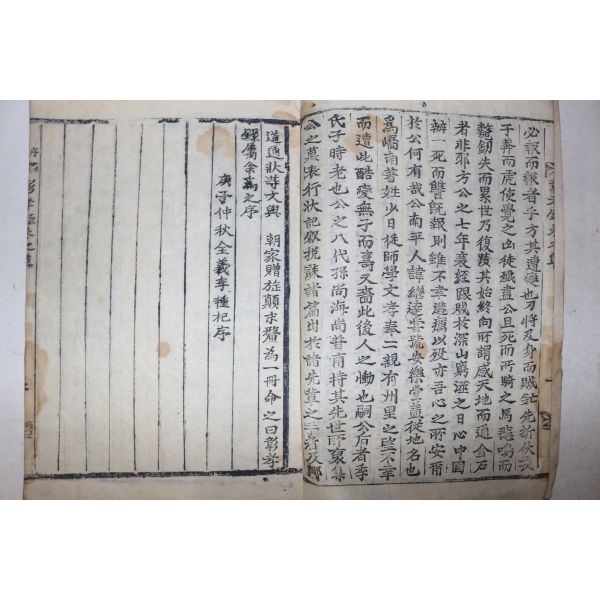 必報而報者乎方其遭變也刃將及身而賊缸先折伏衣
于莽而虎使覺之凶徒殲盡公且死而所騎之馬悲鳴而
韜釰失而累世乃復蹟其始終向所謂感天地而通金石
者非邪方公之七年衰絰跟賊於深山窮邃之日心中固
辦一死而讐旣報則雖不幸遘癘以歿亦吾心之所安爾
於公何有哉公南平人諱繼達堂號安樂堂蓋從地名也
爲嶠南著姓少日從師學文孝奉二親有州里之望不幸
而遭此酷變無子而壽又嗇此後人之慟也嗣公后者季
氏子時老也公之八代孫尚海尚普甫持其先世所裒集
公之墓表行狀記敍挽誄諸篇出於諸先輩之三者及鄕
道通狀等文與 朝家贈旌顛末釐為一冊命之曰彰孝
錄屬余爲之序
庚子仲秋全義李種杞序
序